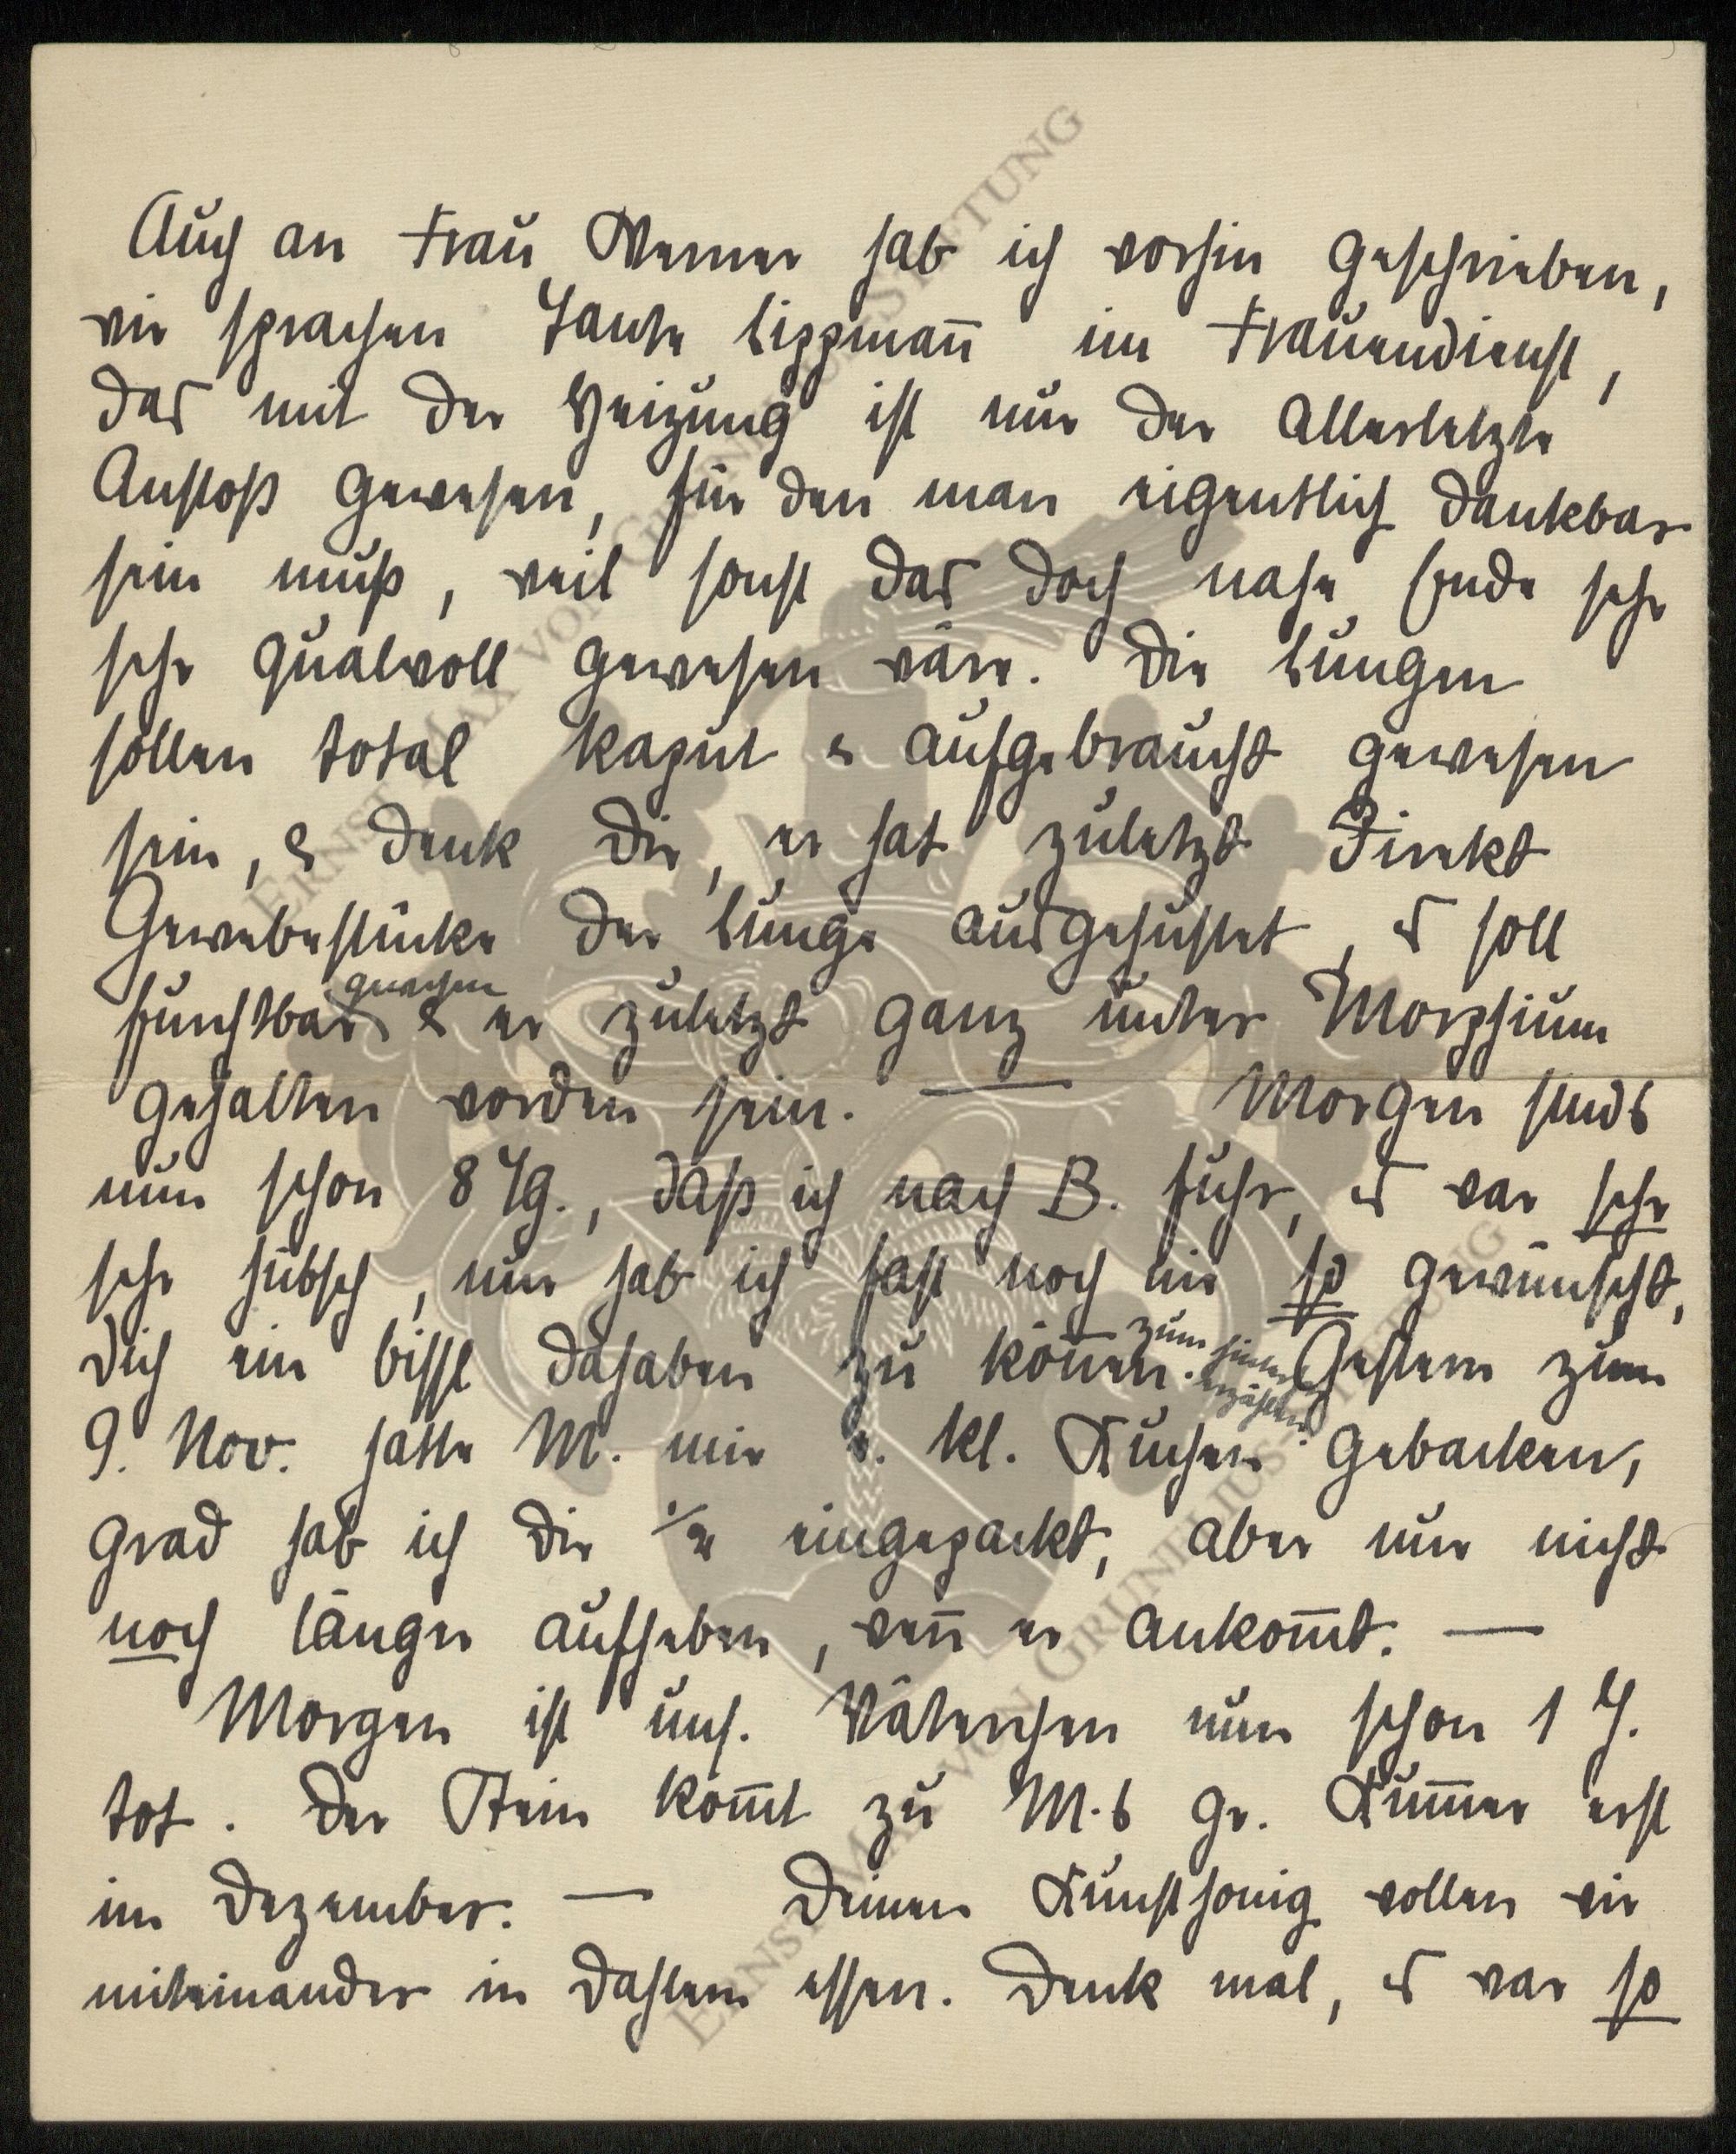 Auch an Frau Werner hab ich vorhin geschrieben,
wir sprachen Tante Lippmañ im Frauendienst,
das mit der Heizung ist nur der allerletzte
Anstoß gewesen, für den man eigentlich dankbar
sein muß, weil sonst das doch nahe Ende sehr
sehr qualvoll gewesen wäre. Die Lungen
sollen total kaput & aufgebraucht gewesen
sein, & denk Dir, er hat zuletzt direkt
Gewebestücke der Lunge ausgehustet, es soll
gewesen
furchtbar & er zuletzt ganz unter Morphium
gehalten worden sein. — Morgen sinds
nun schon 8 Tg., daß ich nach B. fuhr, es war sehr
sehr hübsch, nur hab ich fast noch nie so gewünscht,
Dich ein bissl dahaben zu köñen. Gestern zum
zum
erzählen!
9. Nov. hatte M. mir e. kl. Kuchen gebacken,
grad hab ich Dir ½ eingepackt, aber nur nicht
noch länger aufheben, weñ er ankom̄t. —
Morgen ist uns. Väterchen nun schon 1 J.
tot. Der Stein kom̄t zu M.s gr. Kum̄er erst
im Dezember. — Deinen Kunsthonig wollen wir
miteinander in Dahlem essen. Denk mal, es war so
ERNST MAX VON GRUNELIUS-STIFTUNG
ERNST MAX VON GRUNELIUS-STIFTUNG